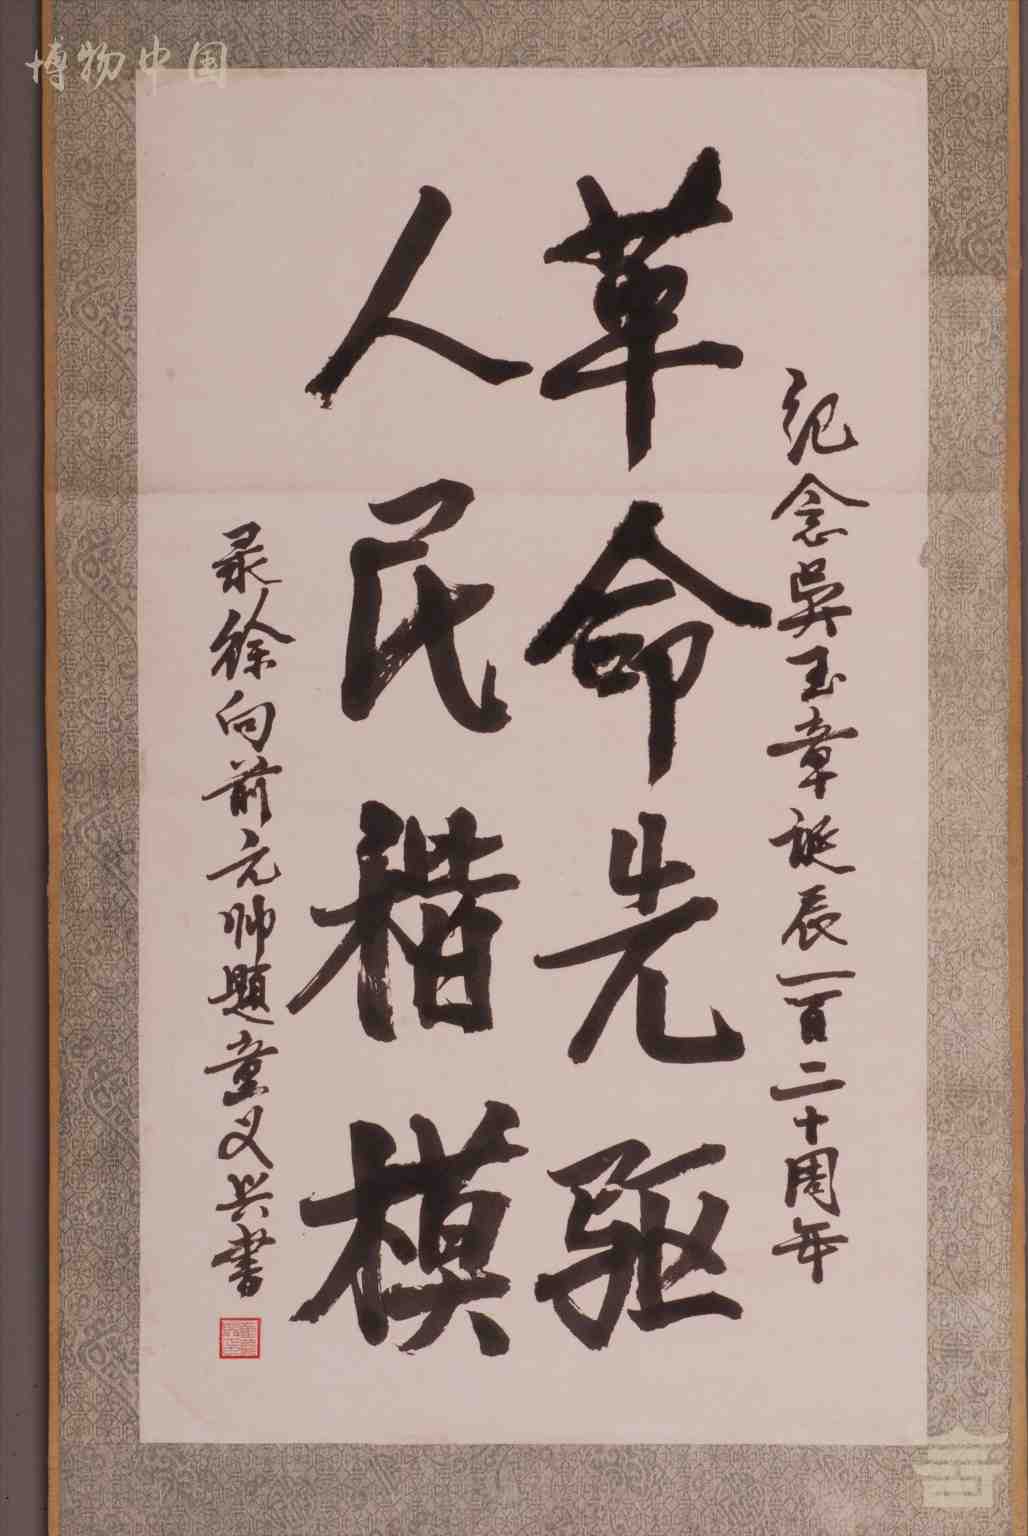 博物中国
纪念吴玉章诞辰一百二十周年
革命先驱
人民楷模
录徐向前元帅题童义兴书